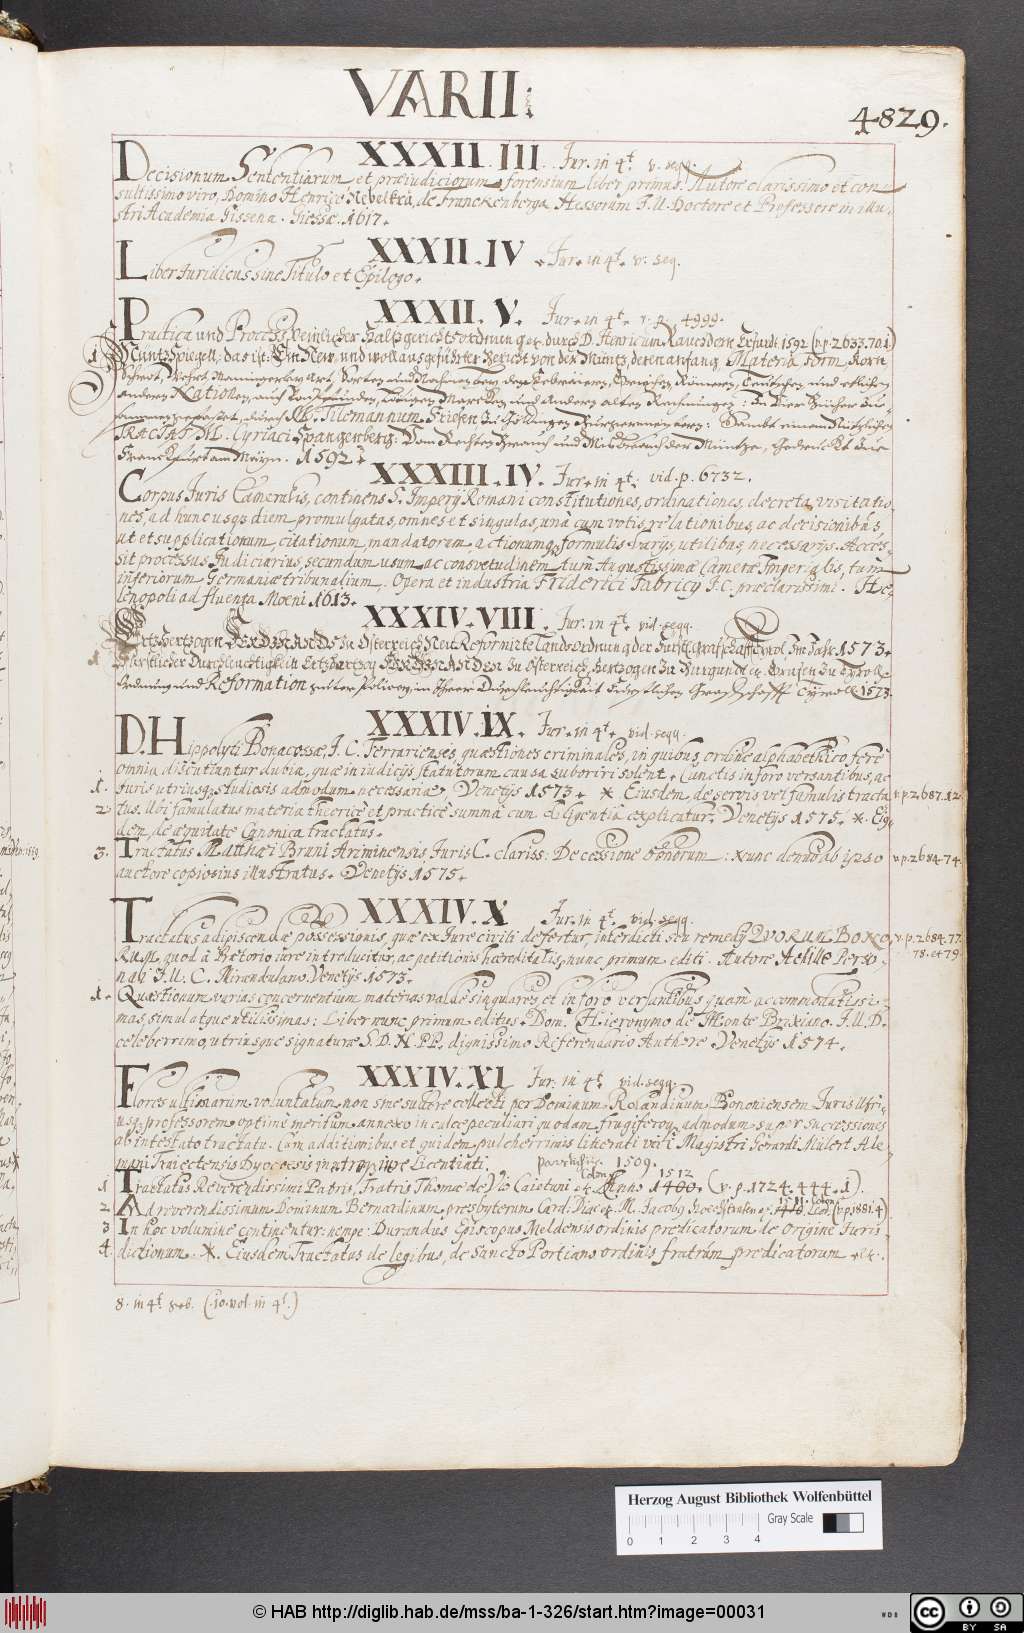 VARII:
4829.
XXXII. III. Jur. in 4t. v. seq.
Decisionum Sententiarum et præiudiciorum forensium liber primus. Autore clarissimo et con-
sultissimo viro, Domino Henrico Nebelkrä, de Franckenberga Hessorum J.U. Doctore et Professore in illu-
stri Academia Gissena. Giessæ. 1617.
XXXII. IV. Jur. in 4t. v. seq.
Liber Juridicus sine Titulo et Epilogo.
XXXII. V. Jur. in 4t. v. p. 4999.
Practica und Process Peinlicher Halsgerichtsordnung durch D. Henricum Rauchdorn Erfurdt 1592 (v.p. 2633.70.1)
1. Müntz Spiegell, das ist: Ein New und woll ausgeführter Bericht von der Müntz, deren anfang, Materia, Form, Korn
Schrot, Wehrt, Mannigerley Art, Sorten
anderen Nationen, alten Rechnungen: In vier Bücher zu-
durch M. Tilemannum Friesen
TRACTAT M. Cyriaci Spangenberg: Vom Rechten Brauch und Mißbrauch der Müntze, Gedruckt zue
Franckfurt am Mäyn. 1592.
XXXIII. IV. Jur. in 4t. vid. p. 6732.
Corpus Juris Cameralis, continens S. Imperij Romani constitutiones, ordinationes, decreta, visitatio-
nes, ad hunc usq; diem promulgatas, omnes et singulas, unà cum votis, relationibus, ac decisionibus,
ut et supplicationum, citationum, mandatorum, actionumq; formulis varijs, utilibus, necessarijs. Acces-
sit processus Judiciarius, secundum usum ac consvetudinem, tum Augustissimæ Cameræ Imperialis, tum
inferiorum Germaniæ tribunalium. Opera et industria Friderici Fabricij J.C. præclarissimi. He-
lenopoli ad fluenta Moeni 1613.
XXXIV. VIII. Jur. in 4t. vid. seqq.
Ertzhertzogen FERDINANDS zu Österreich New Reformirte Landsordnung der Fürstl. Graffschafft Tyrol Im Jahr 1573.
1. Fürstlicher Durchleuchtigkeit Ertzhertzog FERDINANDEN zu Österreich, Hertzogen zu Burgundi etc. Grafen zu Tyroll
Ordnung und Reformation guter Policey, in Ihrer Durchleuchtigkeit Fürstlichen Graffschafft Tyroll. 1573.
XXXIV. IX. Jur. in 4t. vid. seqq.
D. Hippolyti Bonacossæ, J. C. Ferrariensis, quæstiones criminales, in quibus ordine alphabethico ferè
omnia discutiuntur dubia, quæ in iudicijs, statutorum causa suboriri solent. Cunctis in foro versantibus, ac
1. Juris utriusq; studiosis admodum necessariæ. Venetijs 1573. * Eiusdem, de servis vel famulis tracta- v.p. 2687.12.
2. tus. Ubi famulatus materia theoricè et practicè summa cum diligentia explicatur. Venetijs 1575. *. Eius-
dem de æquitate Canonica tractatus.
3. Tractatus Matthæi Bruni Ariminensis Juris C. clariss: De cessione bonorum: Nunc denuo ab ipso v.p. 2684.74.
auctore copiosius illustratus. Venetijs 1575.
XXXIV. X Jur. in 4t. vid. seqq.
Tractatus adipiscendæ possessionis, quæ ex Jure civili defertur, interdicti seu remedij QVORUM BONO- v.p. 2684.77.
RUM, quod à Prætorio iure introducitur, ac petitionis hæreditatis, nunc primum editi. Autore Achille Perso- 78. et 79.
nali J.U.C. Mirandulano. Venetijs 1573.
1. Quæstionum varias concernentium materias valdè singulares, et in foro versantibus quam accommodatissi-
mas, simul atque utilissimas: Liber nunc primum editus. Dom: Hieronymo de Monte Brixiano. J.U.D.
celeberrimo, utriusque signaturæ S.D.N.PP. dignissimo Referendario Authore. Venetijs 1574.
XXXIV. XI Jur. in 4t. vid. seqq.
Flores ultimarum voluntatum non sine sudore collecti per Dominum Rolandinum Bononiensem Juris Utri-
usq; professorem optimè meritum annexo in calce peculiari quodam frugiferoq; admodum super successiones
ab intestato tractatu. Cum additionibus et quidem pulcherrimis literati viri Magistri Gerardi Mulert Ale-
mani Traiectensis Dyocesis in utroq; iure Licentiati. Parrhisiis 1509.
1 Tractatus Reverendissimi Patris, Fratris Thomæ de Vio Caietani etc. Colon. Anno 1400. 1512 (v.p. 1724.444.1).
2 Ad reverendissimum Dominum Bernardinum presbyterum Card. M. Jacobi Hoechstraten (v.p. 1881.4)
3 In hoc volumine continentur: nempe: Durandus Episcopus Meldensis ordinis predicatorum de Origine Juris-
4. dictionum. *. Eiusdem Tractatus de legibus, de Sancto Portiano ordinis fratrum predicatorum etc.
8. in 4t. (10. vol. in 4t.)
Herzog August Bibliothek Wolfenbüttel
Gray Scale
0 1 2 3 4
© HAB http://diglib.hab.de/mss/ba-1-326/start.htm?image=00031
WDB
cc BY SA